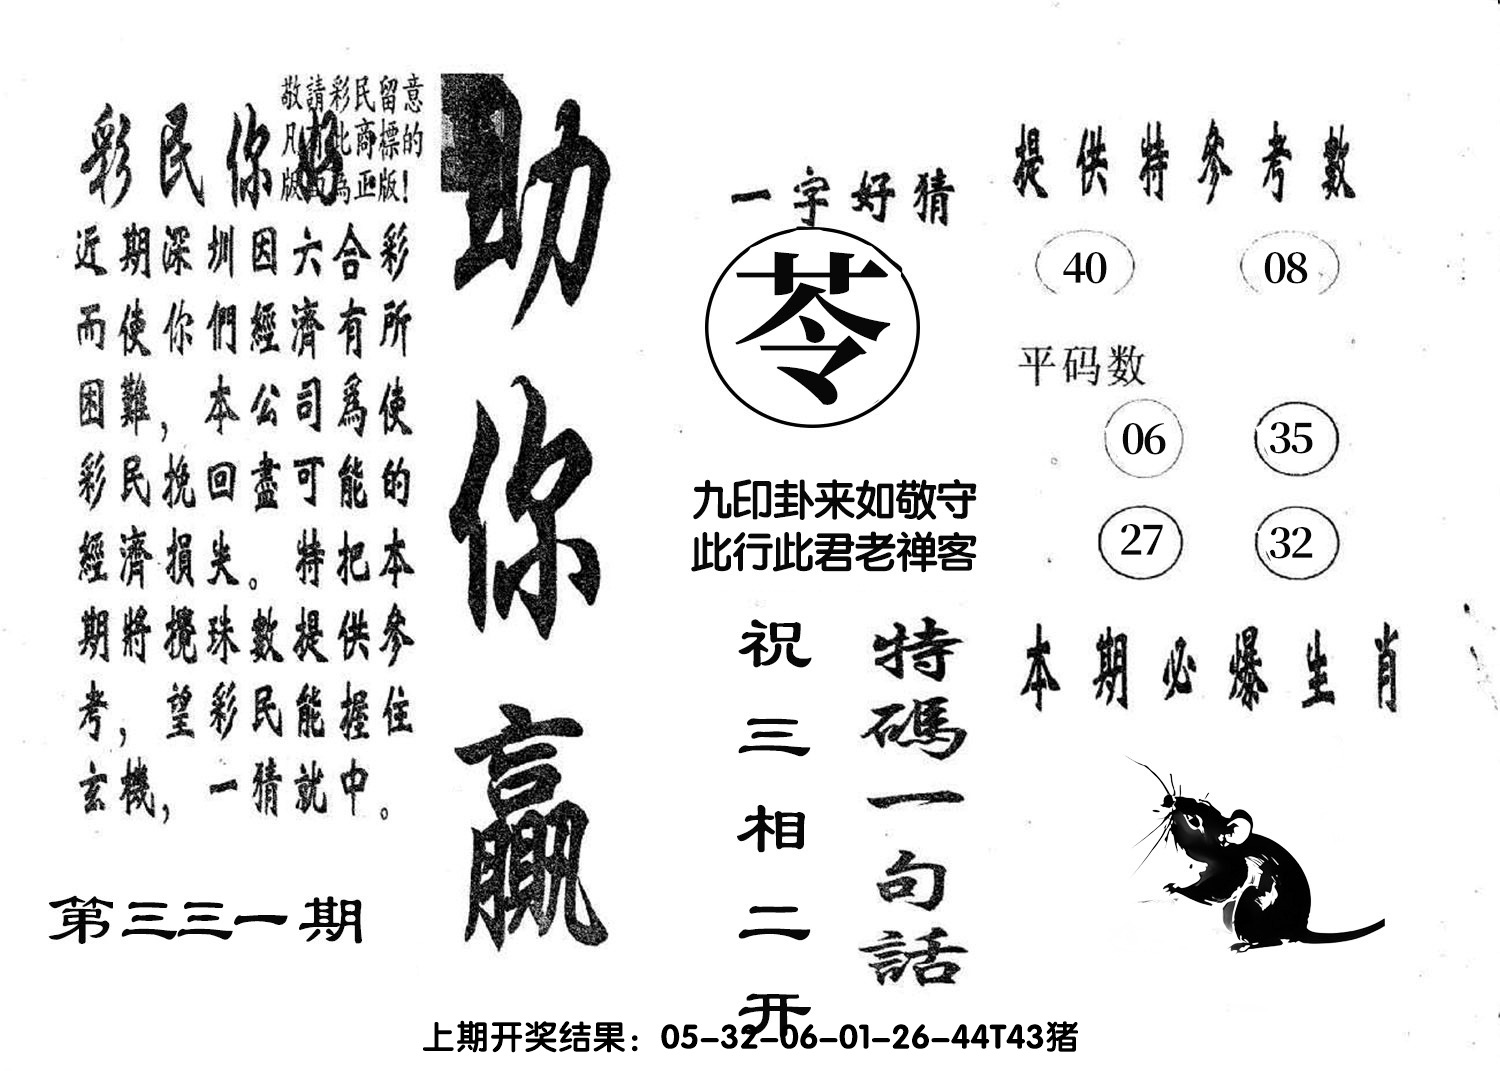 敬請彩民留意
凡有此商標的
版面為正版!
彩民你好
近期深圳因六合彩
而使你們經濟有所
困難，本公司爲使
彩民挽回盡可能的
經濟損失。特把本
期將攪珠數提供參
考，望彩民能握住
玄機，一猜就中。
第三三一期
助你贏
一字好猜
苓
九印卦来如敬守
此行此君老禅客
特碼一句話
祝三相二开
提供特參考數
40 08
平码数
06 35
27 32
本期必爆生肖
上期开奖结果：05-32-06-01-26-44T43猪